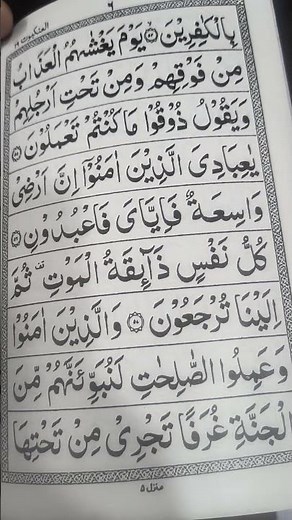 العنكبوت ٢٩
٦
بِالْكٰفِرِيْنَ ۝ يَوْمَ يَغْشٰىهُمُ الْعَذَابُ
مِنْ فَوْقِهِمْ وَمِنْ تَحْتِ اَرْجُلِهِمْ
وَيَقُوْلُ ذُوْقُوْا مَا كُنْتُمْ تَعْمَلُوْنَ ۝
يٰعِبَادِىَ الَّذِيْنَ اٰمَنُوْٓا اِنَّ اَرْضِىْ
وَاسِعَةٌ فَاِيَّاىَ فَاعْبُدُوْنِ ۝
كُلُّ نَفْسٍ ذَآئِقَةُ الْمَوْتِ ثُمَّ
اِلَيْنَا تُرْجَعُوْنَ ۝ وَالَّذِيْنَ اٰمَنُوْا
وَعَمِلُوا الصّٰلِحٰتِ لَنُبَوِّئَنَّهُمْ مِّنَ
الْجَنَّةِ غُرَفًا تَجْرِىْ مِنْ تَحْتِهَا
منزل ۵